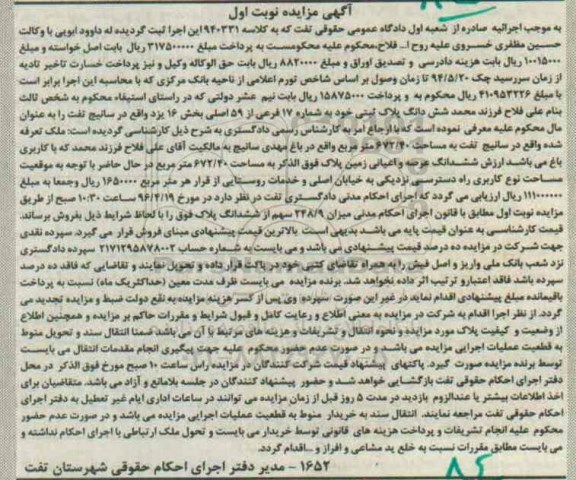 آگهی مزایده نوبت اول
به موجب اجرائیه صادره از شعبه اول دادگاه عمومی حقوقی تفت که به کلاسه ۹۴۰۳۳۱ این اجرا ثبت گردیده له داوود ابویی با وکالت
حسین مظفری خسروی علیه روح ا... فلاح،محکوم علیه محکومست به پرداخت مبلغ ۳۱۷۵۰۰۰۰۰ ریال بابت اصل خواسته و مبلغ
۱۰۰۱۵۰۰۰ ریال بابت هزینه دادرسی و تصدیق اوراق و مبلغ ۸۸۲۰۰۰۰ ریال بابت حق الوکاله وکیل و نیز پرداخت خسارت تاخیر تادیه
از زمان سررسید چک ۹۴/۵/۲۰ تا زمان وصول بر اساس شاخص تورم اعلامی از ناحیه بانک مرکزی که با محاسبه این اجرا برابر است
با مبلغ ۴۱۰۹۵۳۲۲۶ ریال محکوم به و پرداخت ۱۵۸۷۵۰۰۰ ریال بابت نیم عشر دولتی که در راستای استیفاء محکوم به شخص ثالث
بنام علی فلاح فرزند محمد شش دانگ پلاک ثبتی خود به شماره ۱۷ فرعی از ۵۹ اصلی بخش ۱۶ یزد واقع در سانیج تفت را به عنوان
مال محکوم علیه معرفی نموده است که با ارجاع امر به کارشناس رسمی دادگستری به شرح ذیل کارشناسی گردیده است: ملک تعرفه
شده واقع در سانیج تفت به مساحت ۶۷۲/۴۰ متر مربع واقع در باغ مهدی سانیج به مالکیت آقای علی فلاح فرزند محمد که با کاربری
باغ می باشد ارزش ششدانگ عرصه و اعیانی زمین پلاک فوق الذکر به مساحت ۶۷۲/۴۰ متر مربع در حال حاضر با توجه به موقعیت
مساحت نوع کاربری راه دسترسی نزدیکی به خیابان اصلی و خدمات روستایی از قرار هر متر مربع ۱۶۵۰۰۰۰ ریال وجمعا به مبلغ
۱۱۱۰۰۰۰۰۰۰ ریال ارزیابی می گردد که اجرای احکام مدنی دادگستری تفت در نظر دارد در مورخ ۹۶/۴/۱۹ ساعت ۱۰:۳۰ صبح از طریق
مزایده نوبت اول مطابق با قانون اجرای احکام مدنی میزان ۲۴۸/۹ سهم از ششدانگ پلاک فوق را با لحاظ شرایط ذیل بفروش برساند.
قیمت کارشناسی به عنوان قیمت پایه می باشد. بدیهی است بالاترین قیمت پیشنهادی مبنای فروش قرار می گیرد. سپرده نقدی
جهت شرکت در مزایده ده درصد قیمت پیشنهادی می باشد و می بایست به شماره حساب ۲۱۷۱۲۹۵۸۷۸۰۰۲ سپرده دادگستری
نزد شعب بانک ملی واریز و اصل فیش را به همراه تقاضای کتبی خود در پاکت قرار داده و تحویل نمایند و تقاضایی که فاقد ده درصد
سپرده باشد فاقد اعتبار و ترتیب اثر داده نخواهد شد. برنده مزایده می بایست ظرف مدت معین (حداکثر یک ماه) نسبت به پرداخت
باقیمانده مبلغ پیشنهادی اقدام نماید در غیر این صورت سپرده وی پس از کسر هزینه مزایده به نفع دولت ضبط و مزایده تجدید می
گردد. از نظر اجرا اقدام به شرکت در مزایده به معنی اطلاع و رعایت کامل و قبول شرایط و مقررات حاکم بر مزایده و همچنین اطلاع
از وضعیت و کیفیت پلاک مورد مزایده و نحوه انتقال و تشریفات و هزینه های مرتبط با آن می باشد ضمنا انتقال سند و تحویل منوط
به قطعیت عملیات اجرایی مزایده می باشد و در صورت عدم حضور محکوم علیه جهت پیگیری انجام مقدمات انتقال می بایست
توسط برنده مزایده صورت گیرد. پاکتهای پیشنهاد قیمت شرکت کنندگان در مزایده راس ساعت ۱۰ صبح مورخ فوق الذکر در محل
دفتر اجرای احکام حقوقی تفت بازگشایی خواهد شد و حضور پیشنهاد کنندگان در جلسه بلامانع و آزاد می باشد. متقاضیان برای
اخذ اطلاعات بیشتر یا عنداللزوم بازدید در مدت ۵ روز قبل از زمان مزایده می توانند در ساعات اداری ایام غیر تعطیل به دفتر اجرای
احکام حقوقی تفت مراجعه نمایند. انتقال سند به خریدار منوط به قطعیت عملیات اجرایی مزایده می باشد و در صورت عدم حضور
محکوم علیه انجام تشریفات و پرداخت هزینه های قانونی توسط خریدار می بایست و تحول ملک ارتباطی با اجرای احکام نداشته و
می بایست مطابق مقررات نسبت به خلع ید مشاعی و افراز و ...اقدام گردد.
۱۶۵۲ - مدیر دفتر اجرای احکام حقوقی شهرستان تفت